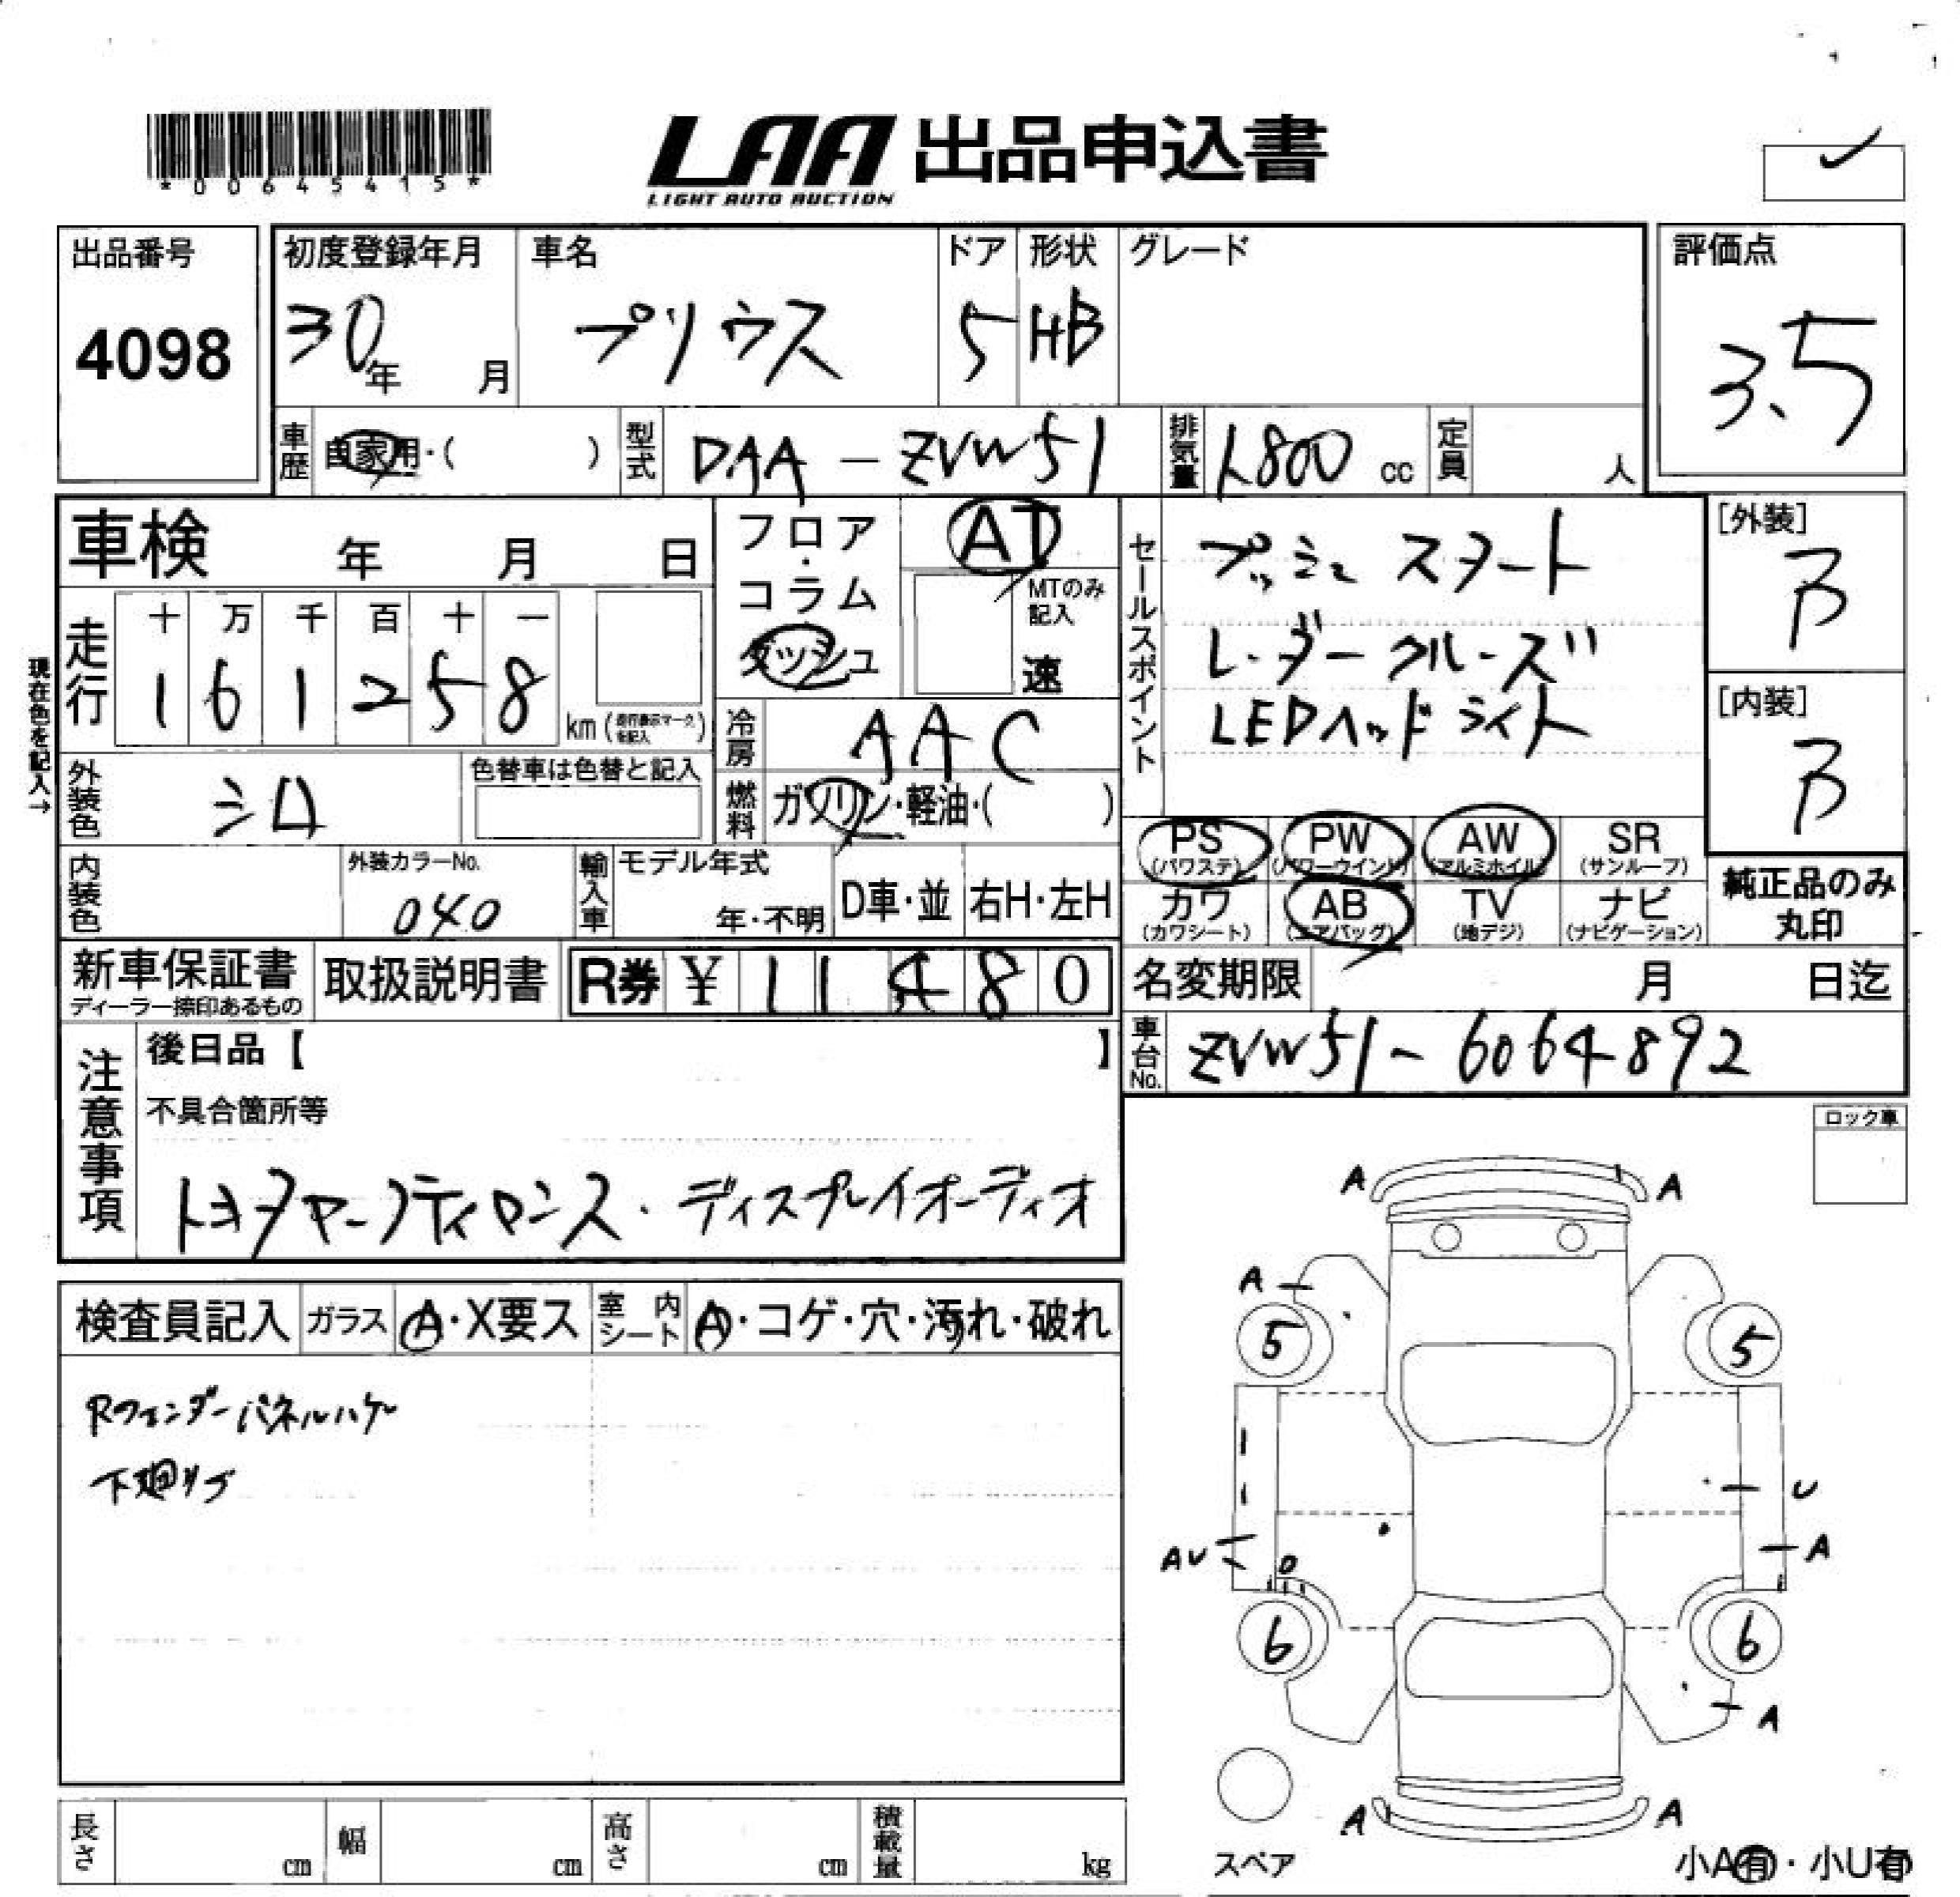 *00645415*
LAA 出品申込書
LIGHT AUTO AUCTION
出品番号
4098
初度登録年月
30年 月
車名
プリウス
ドア
5
形状
HB
グレード
評価点
3.5
車歴
自家用・( )
型式
DAA-ZVW51
排気量
1,800 cc
定員
人
車検 年 月 日
フロア・コラム
ダッシュ
AT
MTのみ記入
速
セールスポイント
プッシュスタート
レーダークルーズ
LEDヘッドライト
[外装]
B
[内装]
B
現在色を記入→
走行
十 万 千 百 十 一
1 6 1 2 5 8
km (走行表示マークを記入)
冷房
AAC
燃料
ガソリン・軽油・( )
外装色
シロ
色替車は色替と記入
内装色
外装カラーNo.
040
輸入車
モデル年式
年・不明
D車・並
右H・左H
PS (パワステ)
PW (パワーウインド)
AW (アルミホイル)
SR (サンルーフ)
カワ (カワシート)
AB (エアバッグ)
TV (地デジ)
ナビ (ナビゲーション)
純正品のみ丸印
新車保証書
ディーラー捺印あるもの
取扱説明書
R券 ¥ 11480
名変期限 月 日迄
車台No.
ZVW51-6064892
注意事項
後日品【 】
不具合箇所等
ディスプレイオーディオ
ロック車
検査員記入
ガラス
A・X要ス
室内シート
A・コゲ・穴・汚れ・破れ
Rフェンダーパネルハゲ
下廻サブ
A A
A
5 5
U
AU A
6 6
A
A A
スペア
小A有・小U有
長さ cm
幅 cm
高さ cm
積載量 kg